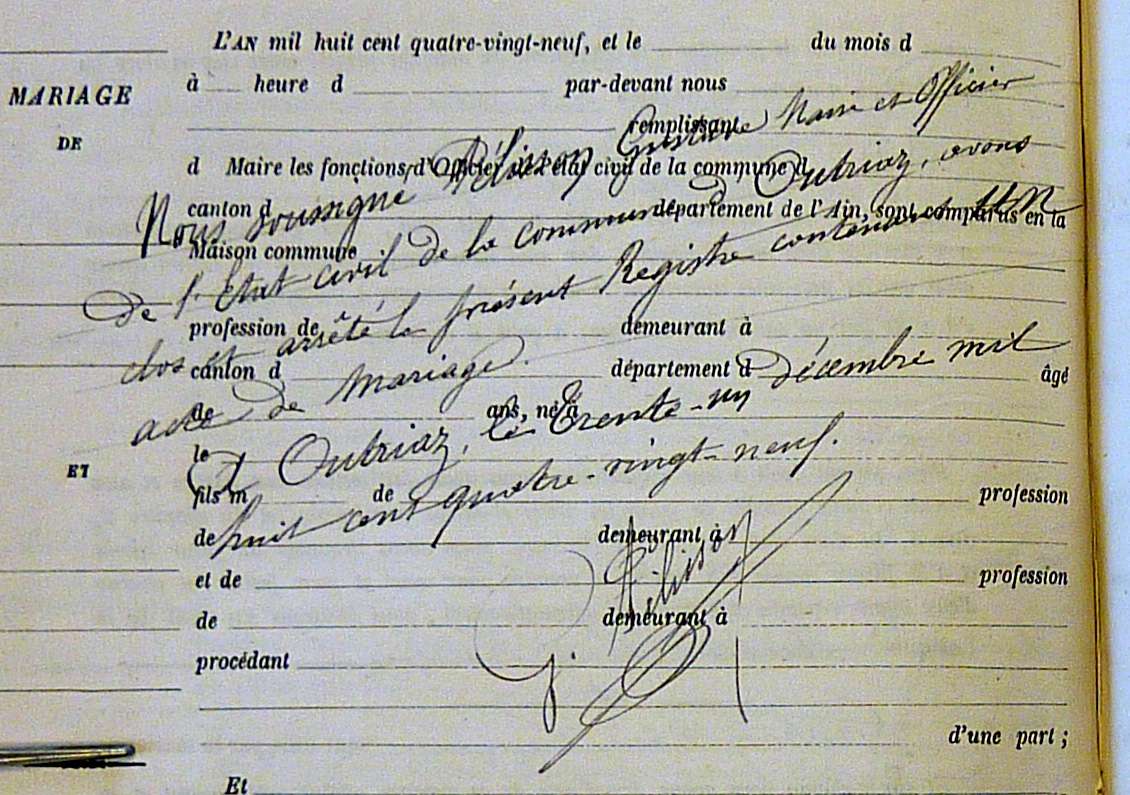 L'AN mil huit cent quatre-vingt-neuf, et le du mois d
à heure d par-devant nous
MARIAGE
remplissant
DE
d Maire les fonctions d'Officier de l'état civil de la commune d
canton d département de l'Ain, sont comparus en la
Maison commune
Nous soussigné Pélisson Gustave Maire et Officier
de l'Etat civil de la commune d'Outriaz, avons
clos et arrêté le présent Registre contenant UN
acte de Mariage.
A Outriaz, le Trente-un décembre mil
huit cent quatre-vingt-neuf.
profession de demeurant à
canton d département d âgé
de ans, né à
le
ET
fils m de profession
de demeurant à
G. Pélisson
et de profession
de demeurant à
procédant
d'une part ;
Et